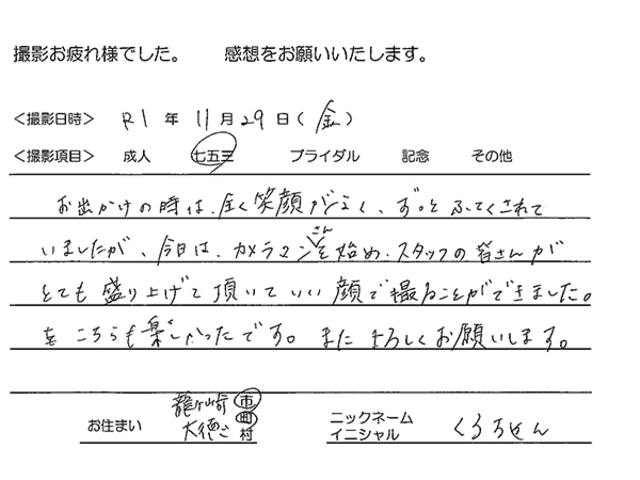 撮影お疲れ様でした。 感想をお願いいたします。
<撮影日時> R1 年 11月 29日(金)
<撮影項目> 成人 七五三 ブライダル 記念 その他
お出かけの時は、全く笑顔がなく、ずっとふてくされて
いましたが、今日は、カメラマンさんを始め、スタッフの皆さんが
とても盛り上げて頂いていい顔で撮ることができました。
こちらも楽しかったです。また よろしくお願いします。
お住まい 龍ヶ崎 市 町 村 大徳
ニックネーム イニシャル くろうせん